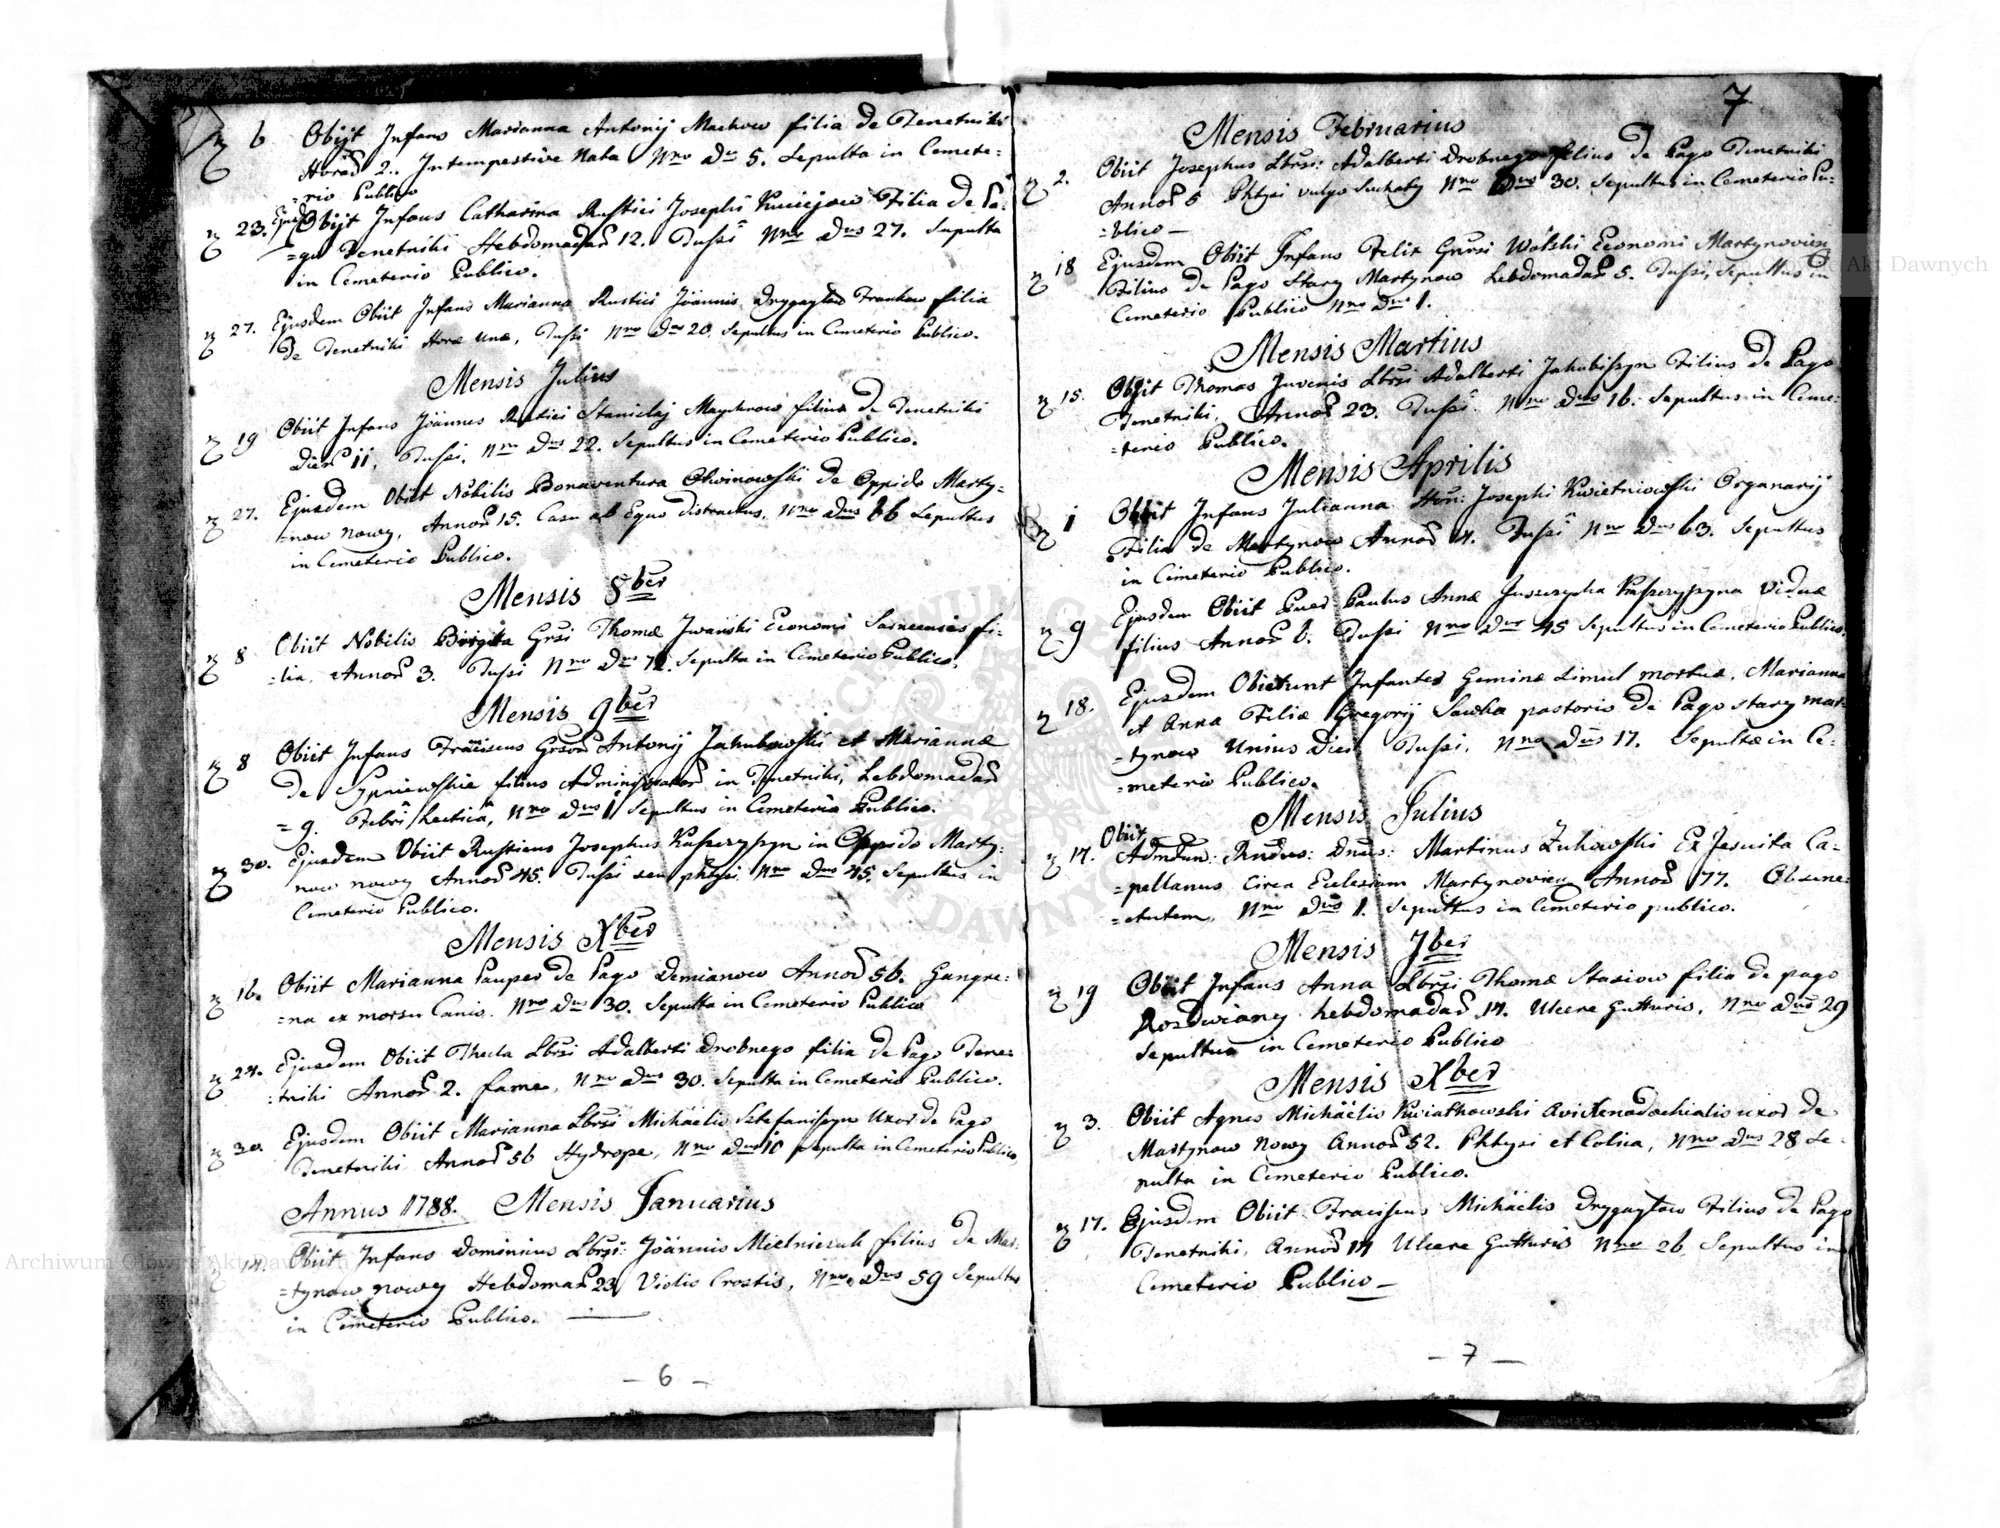 6 Obijt Infans Marianna Antonij Machow filia de Tenetniki
Horar 2. Intempestive Nata Nro Dus 5. Sepulta in Cemete=
=rio Publico
23. Ejusd Obijt Infans Catharina Rustici Josephi Filia de Pa=
=go Tenetniki Hebdomadar 12. Tussi Nro Dus 27. Sepulta
in Cemeterio Publico.
27. Ejusdem Obiit Infans Marianna Rustici Joannis Drygaylow filia
de Tenetniki Horæ unæ, Tussi Nro Dus 20. Sepultus in Cemeterio Publico.
Mensis Julius
19 Obiit Infans Joannes Rustici Stanislaj filius de Tenetniki
Dier 11, Tussi, Nro Dus 22. Sepultus in Cemeterio Publico.
27. Ejusdem Obiit Nobilis Bonaventura de Oppido Marty=
=now Nowy, Annor 15. Casu ab Equo distractus, Nro Dus 66 Sepultus
in Cemeterio Publico.
Mensis 8ber
8 Obiit Nobilis Brigita Grsi Thomæ Iwanski Economi fi=
=lia, Annor 3. Tussi Nro Dus Sepulta in Cemeterio Publico.
Mensis 9ber
8 Obiit Infans Franciscus Antonij Jakubowski et Mariannæ
de Sypniewskie filius in Tenetniki, Hebdomadar
=9. Febri hectica, Nro Dus 1 Sepultus in Cemeterio Publico.
30. Ejusdem Obiit Rusticus Josephus Kasperyszyn in Oppido Marty=
now nowy Annor 45. Tussi seu phtysi Nro Dus 45. Sepultus in
Cemeterio Publico.
Mensis Xber
16. Obiit Marianna Pauper de Pago Demianow Annor 56. Gangre=
=na ex morsu Canis. Nro Dus 30. Sepulta in Cemeterio Publico
24. Ejusdem Obiit Thecla Lbrsi Adalberti Drobnego filia de Pago Tene=
=tniki Annor 2. fame, Nro Dus 30. Sepulta in Cemeterio Publico.
30. Ejusdem Obiit Marianna Lbrsi Michäelis Sztefaniszyn Uxor de Pago
Tenetniki Annor 56 Hydrope, Nro Dus 10 Sepulta in Cemeterio Publico
Annus 1788. Mensis Januarius
14. Obiit Infans Dominicus Lbrsi: Joännis Mielniczuk filius de Mar=
=tynow nowy Hebdomar 23 Nro Dus 59 Sepultus
in Cemeterio Publico.
— 6 —
7
Mensis Februarius
2. Obiit Josephus Lbrsi: Adalberti Drobnego filius de Pago Tenetniki
Annor 5 Phtysi vulgo Suchoty Nro Dus 30. Sepultus in Cemeterio Pu=
=blico —
18 Ejusdem Obiit Infans Felix Grsi Wolski Economi Martynovien
Filius de Pago Stary Martynow Hebdomadar 5. Tussi, Sepultus in
Cemeterio Publico Nro Dus 1.
Mensis Martius
15. Obijt Thomas Juvenis Lbrsi Adalberti Jakubiszyn Filius de Pago
Tenetniki, Annor 23. Tussi. Nro Dus 16. Sepultus in Ceme=
=terio Publico.
Mensis Aprilis
1 Obiit Infans Julianna Hon: Josephi Kwietniowski Organarij
Filia de Martynow Annor 4. Tussi Nro Dus 63. Sepultus
in Cimeterio Publico.
9 Ejusdem Obiit Puer Paulus Annæ Kasperyszyna Viduæ
filius Annor 6. Tussi Nro Dus 45 Sepultus in Cemeterio Publico.
18. Ejusdem Obierunt Infantes Geminæ Simul mortuæ, Marianna
et Anna Filiæ Gregorij Sawka pastoris de Pago stary mar=
=tynow Unius Diei Tussi, Nro Dus 17. Sepultæ in Ce=
=meterio Publico.
Mensis Julius
Obiit
14. Admdum: Rndus: Dnus: Martinus Żukowski Ex Jesuita Ca=
=pellanus circa Eclesiam Martynovien Annor 77. Obsene=
=ctutem, Nro Dus 1. Sepultus in Cemeterio publico.
Mensis 7ber
19 Obiit Infans Anna Lbrsi Thomæ Stasiow filia de pago
Rozdwiany hebdomadar 14. Ulcere Gutturis, Nro Dus 29
Sepultus in Cemeterio Publico
Mensis Xber
3. Obiit Agnes Michäelis Kwiatkowski uxor de
Martynow Nowy Annor 52. Phtysi et Colica, Nro Dus 28 Se=
pulta in Cimeterio Publico.
17. Ejusdem Obiit Franciscus Michäelis Drygaylow Filius de Pago
Tenetniki, Annor 14 Ulcere Gutturis Nro 26 Sepultus in
Cemeterio Publico —
— 7 —
Archiwum Główne Akt Dawnych
Archiwum Główne Akt Dawnych